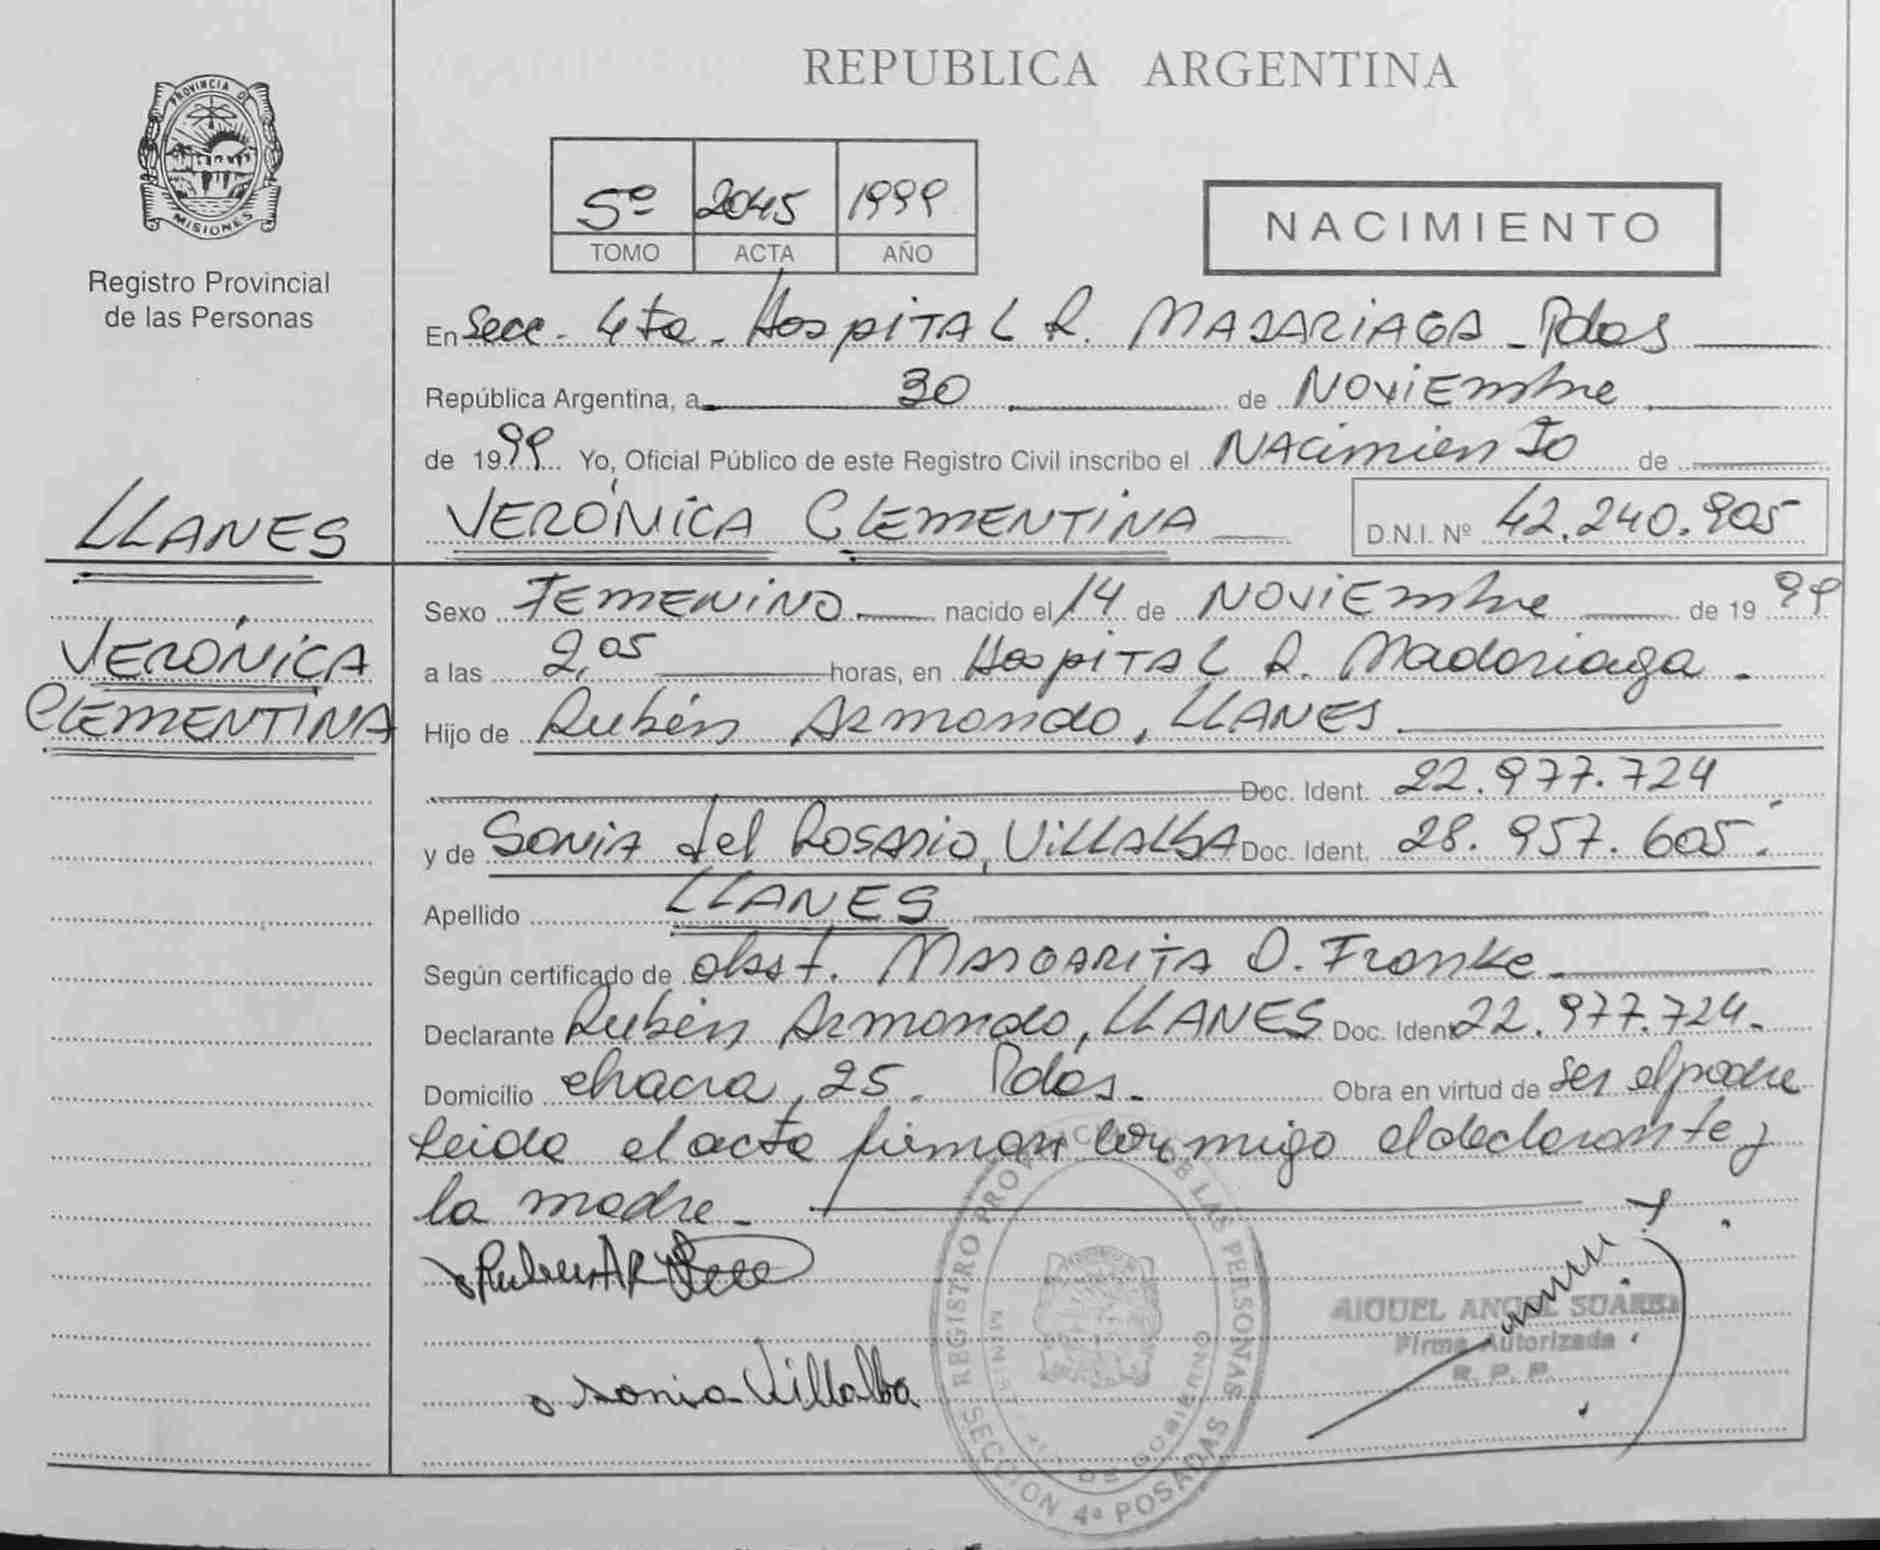 REPUBLICA ARGENTINA
PROVINCIA DE
MISIONES
Registro Provincial
de las Personas
5º 2045 1999
TOMO ACTA AÑO
NACIMIENTO
En Secc. 4ta. Hospital R. MADARIAGA - Pdas
República Argentina, a 30 de Noviembre
de 1999 Yo, Oficial Público de este Registro Civil inscribo el Nacimiento de
LLANES
VERÓNICA CLEMENTINA D.N.I. Nº 42.240.905
VERÓNICA
CLEMENTINA
Sexo FEMENINO nacido el 14 de NOViEmbre de 19 99
a las 2,05 horas, en Hospital R. Madariaga.
Hijo de Rubén Armando, LLANES
Doc. Ident. 22.977.724
y de Sonia del Rosario, VILLALBA Doc. Ident. 28.957.605.
Apellido LLANES
Según certificado de obst. MARGARITA D. Franke
Declarante Rubén Armando, LLANES Doc. Ident 22.977.724.
Domicilio chacra, 25. Pdas. Obra en virtud de ser el padre
Leida el acta firman conmigo el declarante y
la madre.
Sonia Villalba
REGISTRO PROVINCIAL DE LAS PERSONAS
SECCION 4ª POSADAS
DE GOBIERNO
MIGUEL ANGEL SUAREZ
Firma Autorizada
R. P. P.